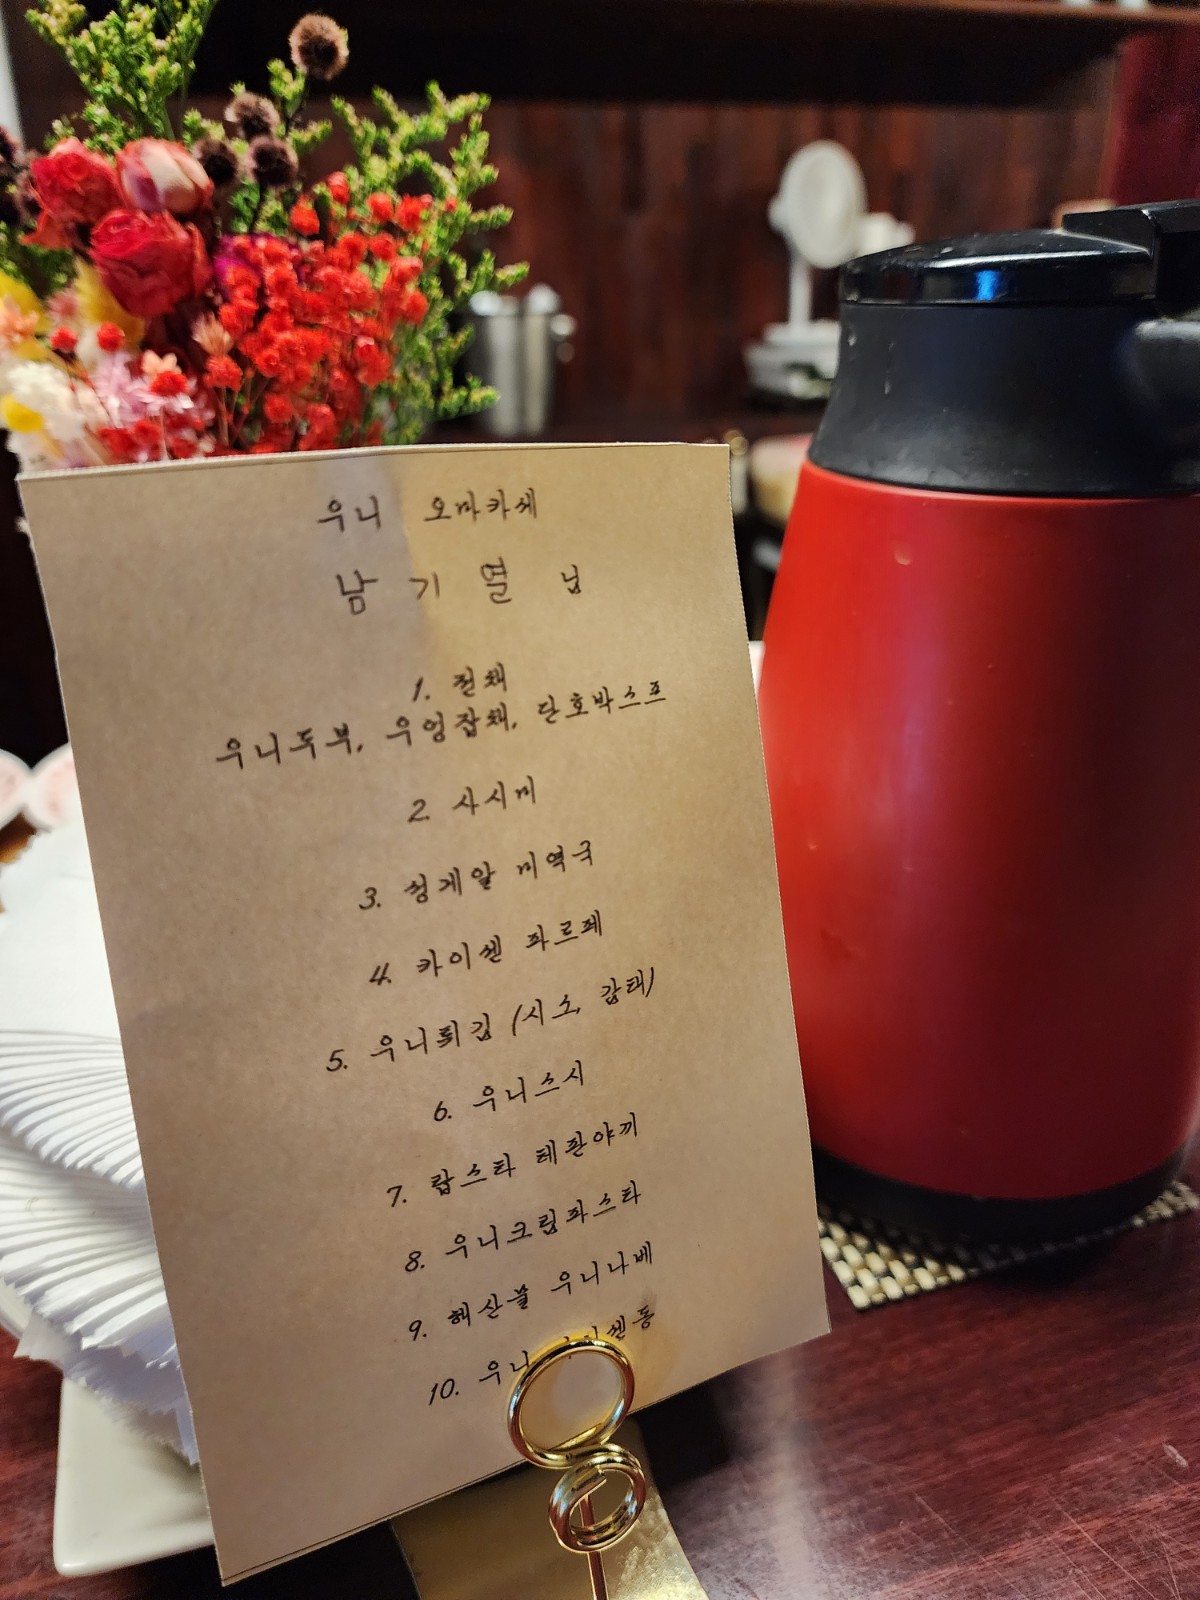 우니 오마카세
남기열 님
1. 전채
우니두부, 우엉잡채, 단호박스프
2. 사시미
3. 성게알 미역국
4. 카이센 파르페
5. 우니튀김 (시소, 감태)
6. 우니스시
7. 랍스타 테판야끼
8. 우니크림파스타
9. 해산물 우니나베
10. 우니